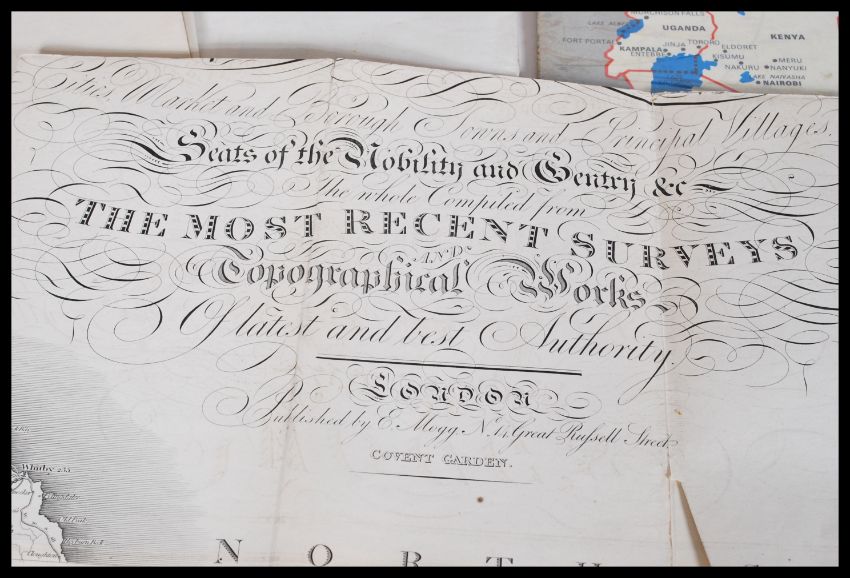 MURCHISON FALLS
LAKE ALBERT
UGANDA
KENYA
FORT PORTAL
KAMPALA
JINJA
TORORO
ELDORET
ENTEBBE
KISUMU
MERU
NAKURU
NANYUKI
LAKE NAIVASHA
NAIROBI
Cities, Market and Borough Towns and Principal Villages,
Seats of the Nobility and Gentry &c
The whole Compiled from
THE MOST RECENT SURVEYS
AND
Topographical Works
Of latest and best Authority
LONDON
Published by E. Mogg N. 14, Great Russell Street
COVENT GARDEN.
Whitby 235
Cloughton
NORTH